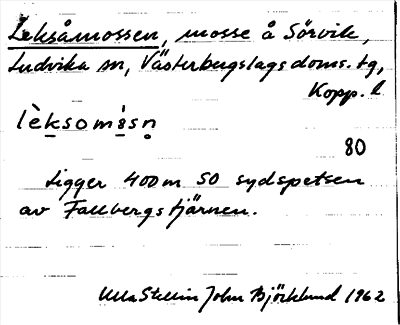 Leksåmossen, mosse å Sörvik,
Ludvika sn, Västerbergslags doms. tg,
Kopp. l
lèksomåsn̥
80
Ligger 400 m SO sydspetsen
av Fallbergstjärnen.
Ulla Stellin John Björklund 1962